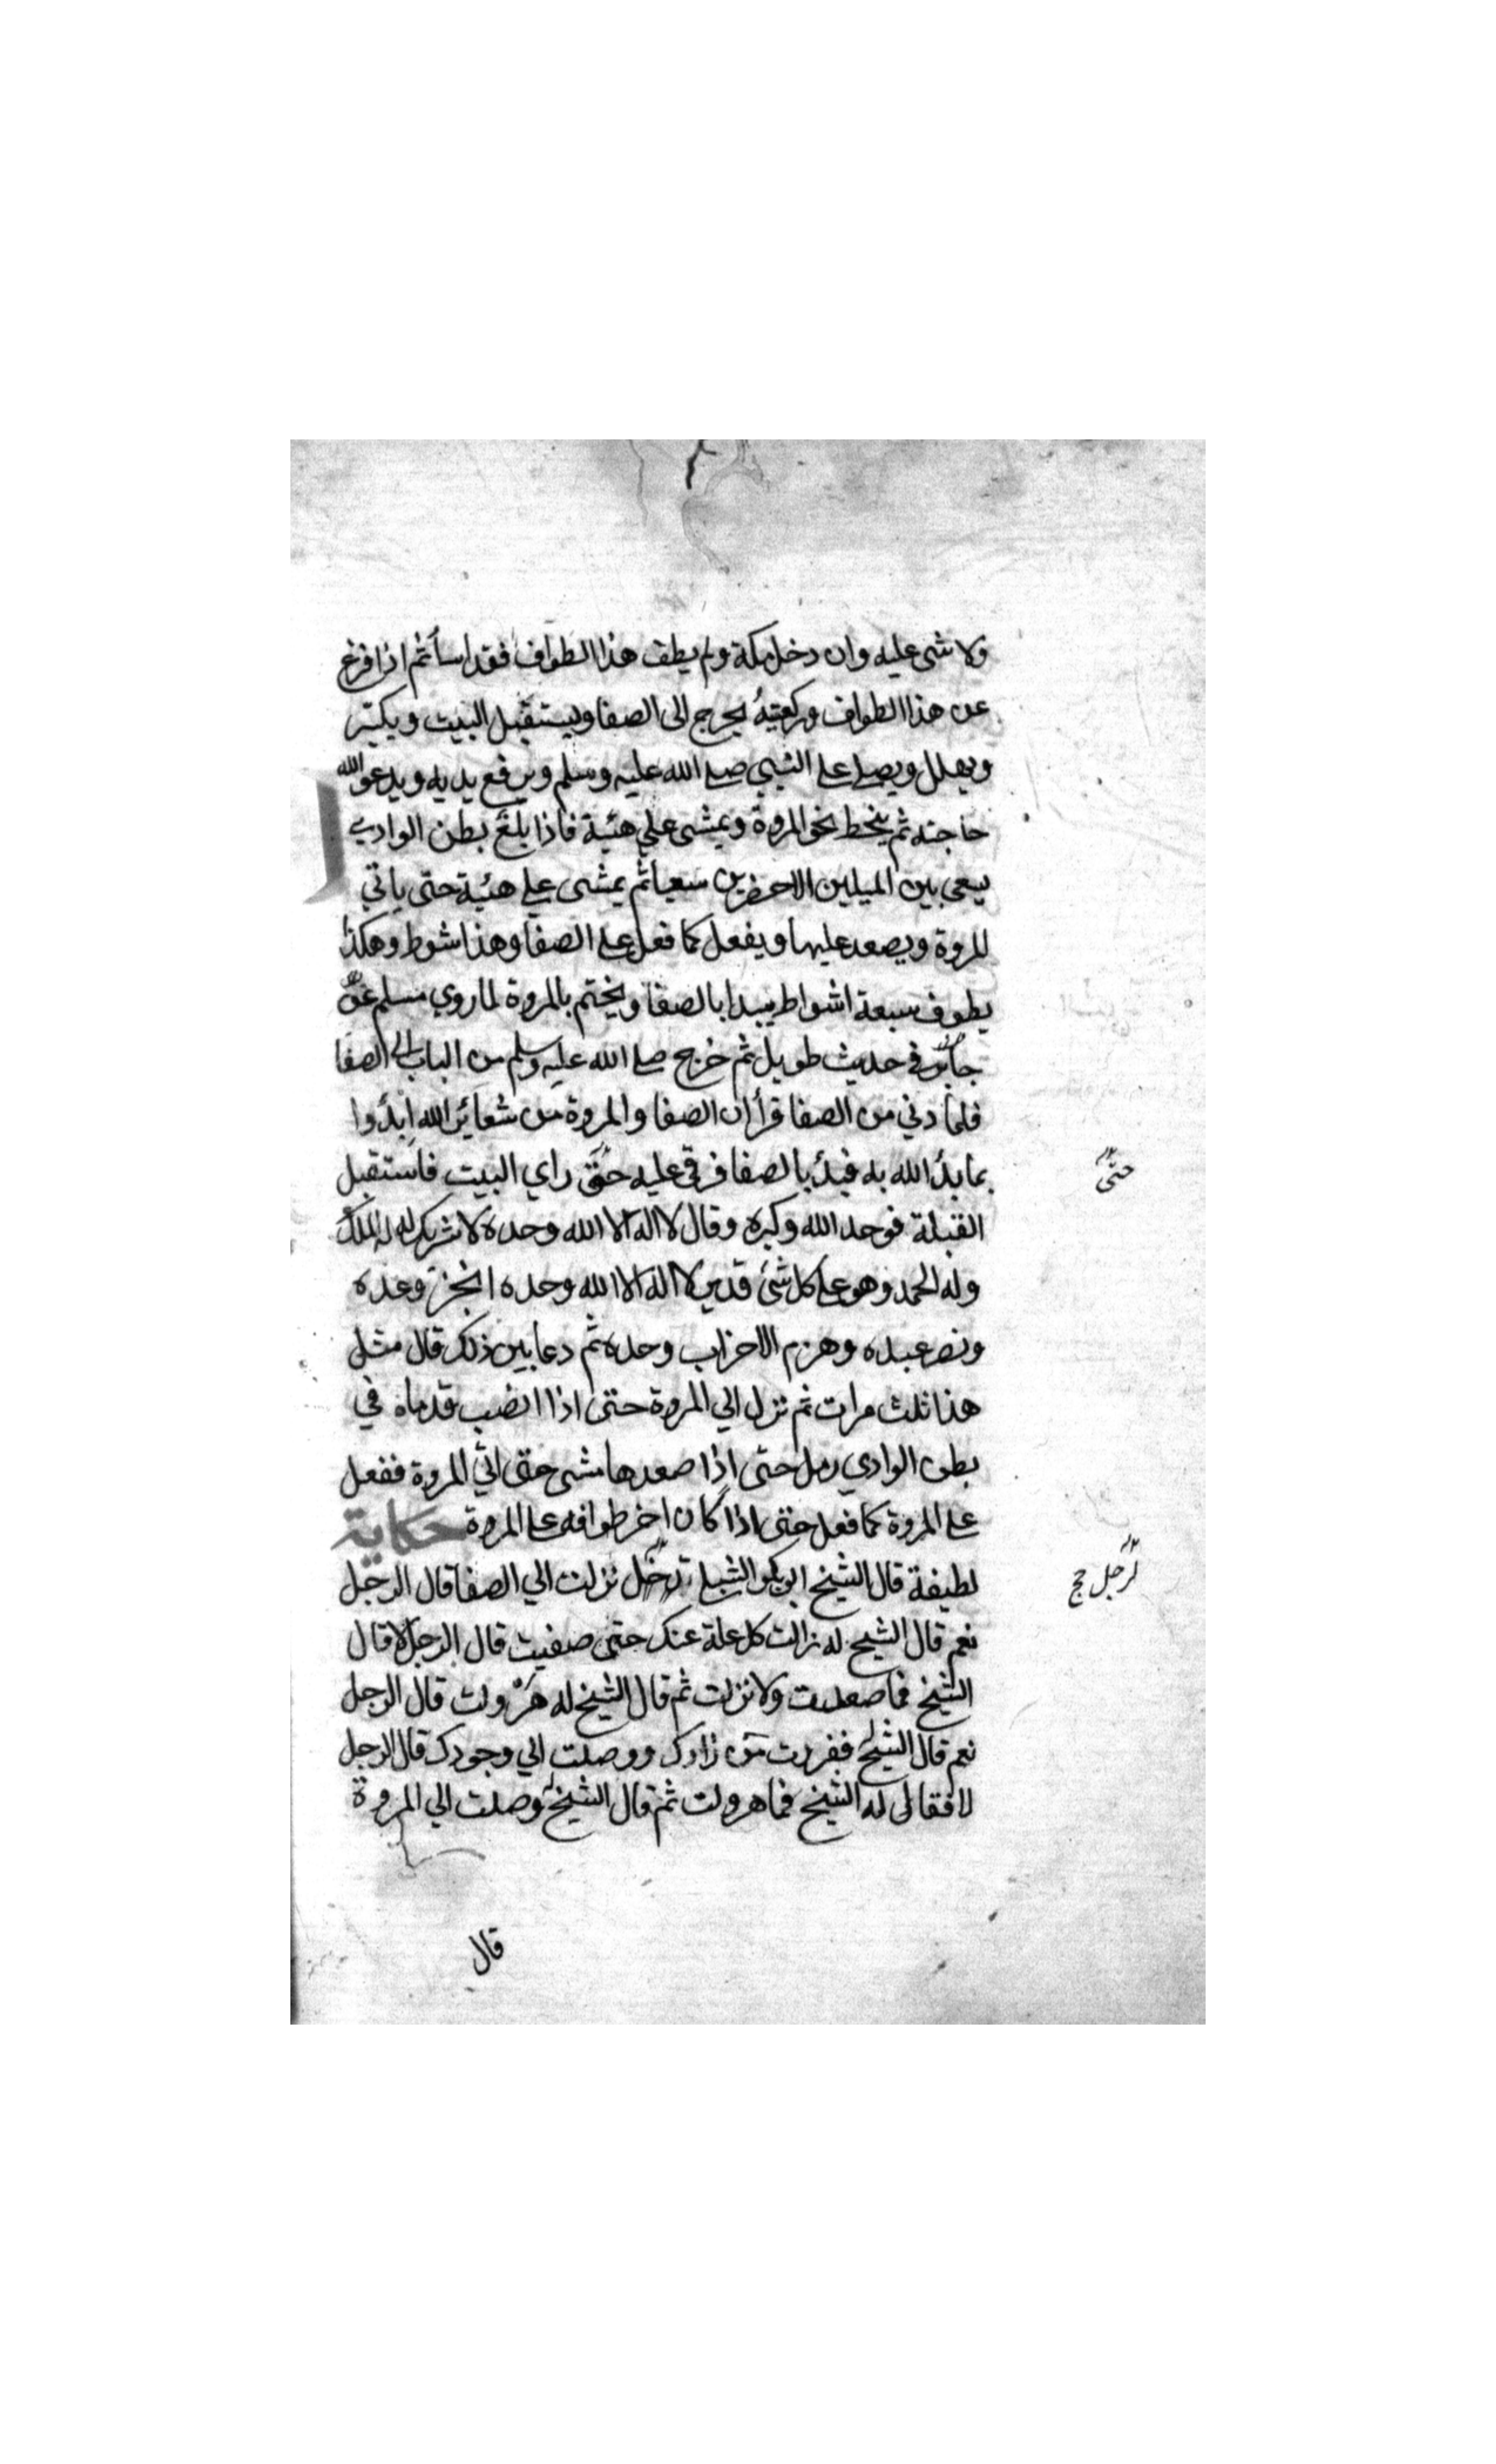 ولا شى عليه وان دخل مكة ولم يطف هذا الطواف فقد اسأ ثم اذا فرغ
عن هذا الطواف وركعتيه يخرج الى الصفا ويستقبل البيت ويكبّر
ويهلل ويصلے علے النبي صلے الله عليه وسلم ويرفع يديه ويدعو الله
حاجته ثم ينحط نحو المروة ويمشى علي هئية فاذا بلغ بطن الوادي
يسعى بين الميلين الاخضرين سعيا ثم يمشى علے هئية حتى ياتي
المروة ويصعد عليها ويفعل كما فعل علے الصفا وهذا شوط وهكذا
يطوف سبعة اشواط يبدا بالصفا ويختم بالمروة لما روي مسلم عن
جابر في حديث طويل ثم خرج صلے الله عليه وسلم من الباب الى الصفا
فلما دني من الصفا قرأ ان الصفا والمروة من شعائر الله ابدؤا
بما بدأ الله به فبدأ بالصفا فرقى عليه حتى راي البيت فاستقبل
حتّى
القبلة فوحد الله وكبره وقال لا اله الا الله وحده لا شريك له له الملك
وله الحمد وهو علے كل شئ قدير لا اله الا الله وحده انجز وعده
ونصر عبده وهزم الاحزاب وحده ثم دعا بين ذلك قال مثل
هذا ثلث مرات ثم نزل الي المروة حتى اذا انصب قدماه في
بطن الوادي رمل حتى اذا صعدها مشى حتى اتي المروة ففعل
علے المروة كما فعل حتى اذا كان اخر طوافه علے المروة حكاية
لطيفة قال الشيخ ابو بكر الشبلے نزلت الي الصفا قال الرجل
لرجل حج
نعم قال الشيخ له زالت كل علة عنك حتى صفيت قال الرجل لا قال
الشيخ فما صعدت ولا نزلت ثم قال الشيخ له هَرْولت قال الرجل
نعم قال الشيخ ففررت من زادك ووصلت الي وجودك قال الرجل
لا فقال له الشيخ فما هرولت ثم قال الشيخ وصلت الي المروة
قال